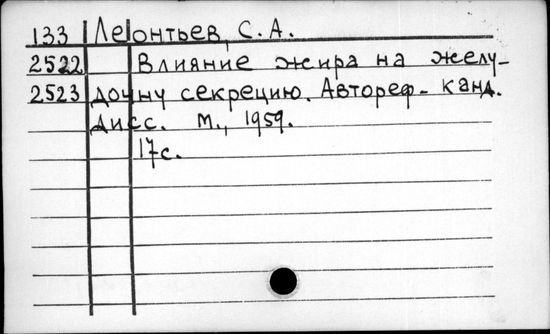 133 Леонтьев, С.А.
2522 Влияние жира на желу-
2523 дочну секрецию. Автореф. канд.
дисс. М., 1959.
17с.